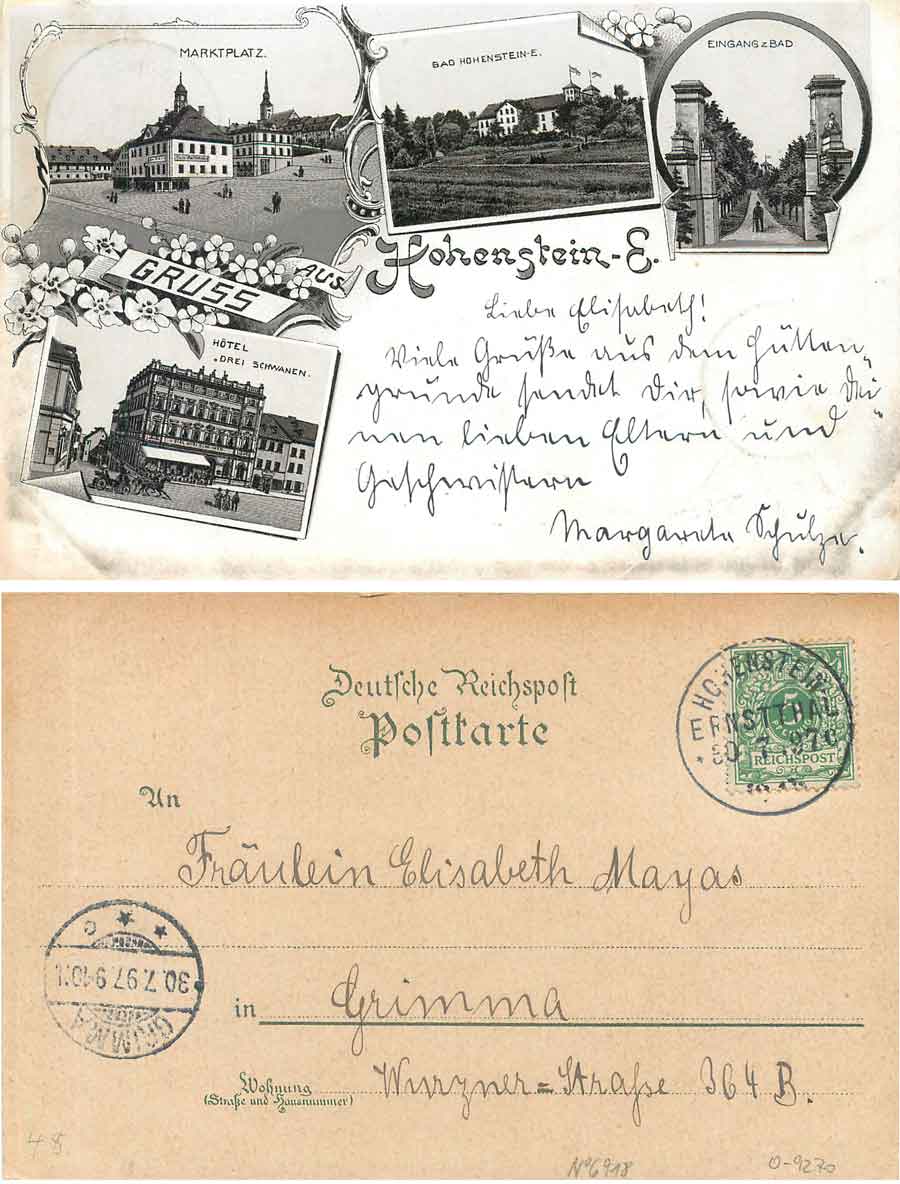 MARKTPLATZ.
BAD HOHENSTEIN-E.
EINGANG z BAD
GRUSS AUS Hohenstein-E.
HÔTEL
„DREI SCHWANEN.
Liebe Elisabeth!
Viele Grüße aus dem Hütten„
grunde sendet Dir, sowie Dei„
nen lieben Eltern und
Geschwistern
Margarete Schulze.
Deutsche Reichspost
Postkarte
HOHENSTEIN-
ERNSTTHAL
5
REICHSPOST
An
Fräulein Elisabeth Mayas
C
30.7.97.9-10.
GRIMMA
in Grimma
Wohnung
(Straße und Hausnummer)
Wurzner=Straße 364 B.
No 6918
O-9270